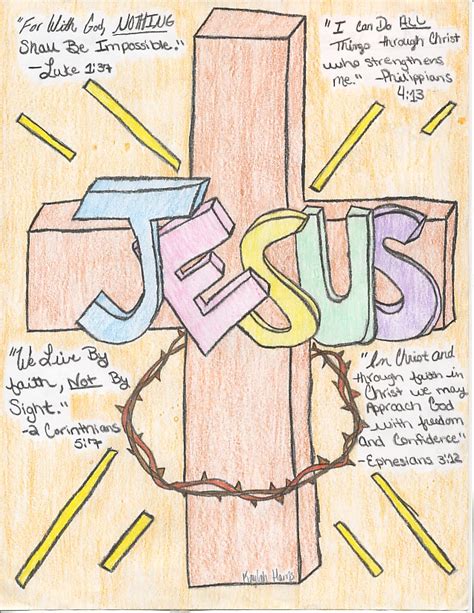 "For With God, NOTHING
Shall Be Impossible."
-Luke 1:37
"I Can Do ALL
Things through Christ
who strengthens
me." -Philippians
4:13
JESUS
"We Live By
faith, Not By
Sight."
-2 Corinthians
5:7
"In Christ and
through faith in
Christ we may
Approach God
with freedom
and Confidence"
-Ephesians 3:12
Kaylah Harris